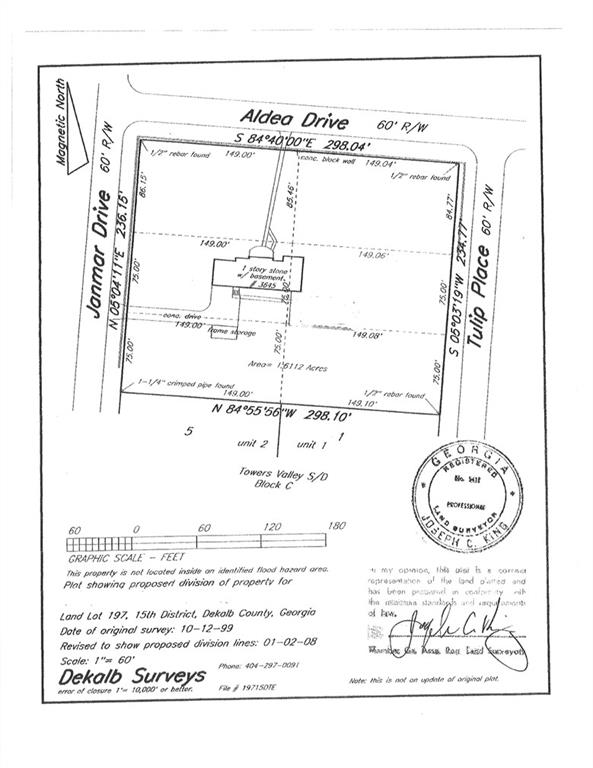 Magnetic North
Aldea Drive 60' R/W
S 84°40'00"E 298.04'
149.00'
149.04'
1/2" rebar found
conc. block wall
1/2" rebar found
Janmar Drive 60' R/W
N 05°04'11"E 236.15'
86.15'
85.46'
84.77'
Tulip Place 60' R/W
S 05°03'19"W 234.77'
149.00'
149.06'
75.00'
1 story stone
w/ basement
# 3645
75.00'
75.00'
conc. drive
149.00'
frame storage
149.08'
75.00'
75.00'
75.00'
Area= 1.6112 Acres
1-1/4" crimped pipe found
149.00'
1/2" rebar found
149.10'
N 84°55'56"W 298.10'
5
unit 2
unit 1
1
Towers Valley S/D
Block C
GEORGIA
REGISTERED
No. 1418
PROFESSIONAL
LAND SURVEYOR
JOSEPH C. KING
60 0 60 120 180
GRAPHIC SCALE - FEET
This property is not located inside an identified flood hazard area.
Plat showing proposed division of property for
Land Lot 197, 15th District, Dekalb County, Georgia
Date of original survey: 10-12-99
Revised to show proposed division lines: 01-02-08
Scale: 1"= 60'
Dekalb Surveys
Phone: 404-297-0091
error of closure 1'= 10,000' or better.
File # 19715DTE
in my opinion, this plat is a correct
representation of the land platted and
has been prepared in conformity with
the minimum standards and requirements
of law.
Member Ga. Assn. Reg. Land Surveyors
Note: this is not an update of original plat.